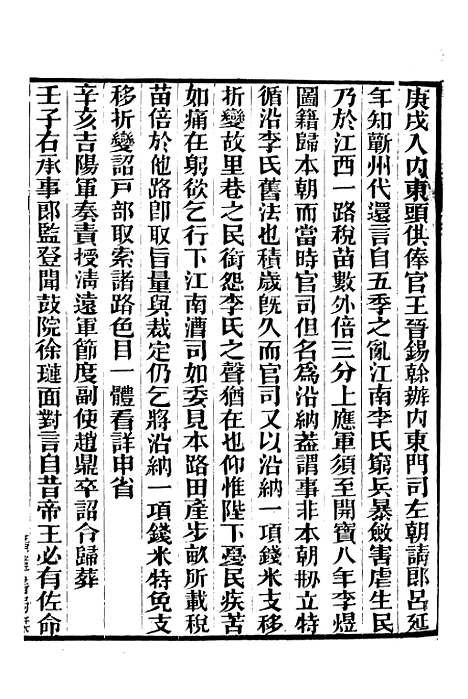 庚戌入內東頭供俸官王晉錫榦辦内東門司左朝請郎呂延
年知蘄州代還言自五季之亂江南李氏窮兵暴斂害虐生民
乃於江西一路稅苗數外倍三分上應軍須至開寶八年李煜
圖籍歸本朝而當時官司但名爲沿納蓋謂事非本朝剏立特
循沿李氏舊法也積歲旣久而官司又以沿納一項錢米支移
折變故里巷之民銜怨李氏之聲猶在也仰惟陛下憂民疾苦
如痛在躬欲乞行下江南漕司如委見本路田產步畝所載稅
苗倍於他路卽取旨量與裁定仍乞將沿納一項錢米特免支
移折變詔戸部取索諸路色目一體看詳申省
辛亥吉陽軍奏責授淸遠軍節度副使趙鼎卒詔令歸葬
壬子右承事郎監登聞鼓院徐璉面對言自昔帝王必有佐命